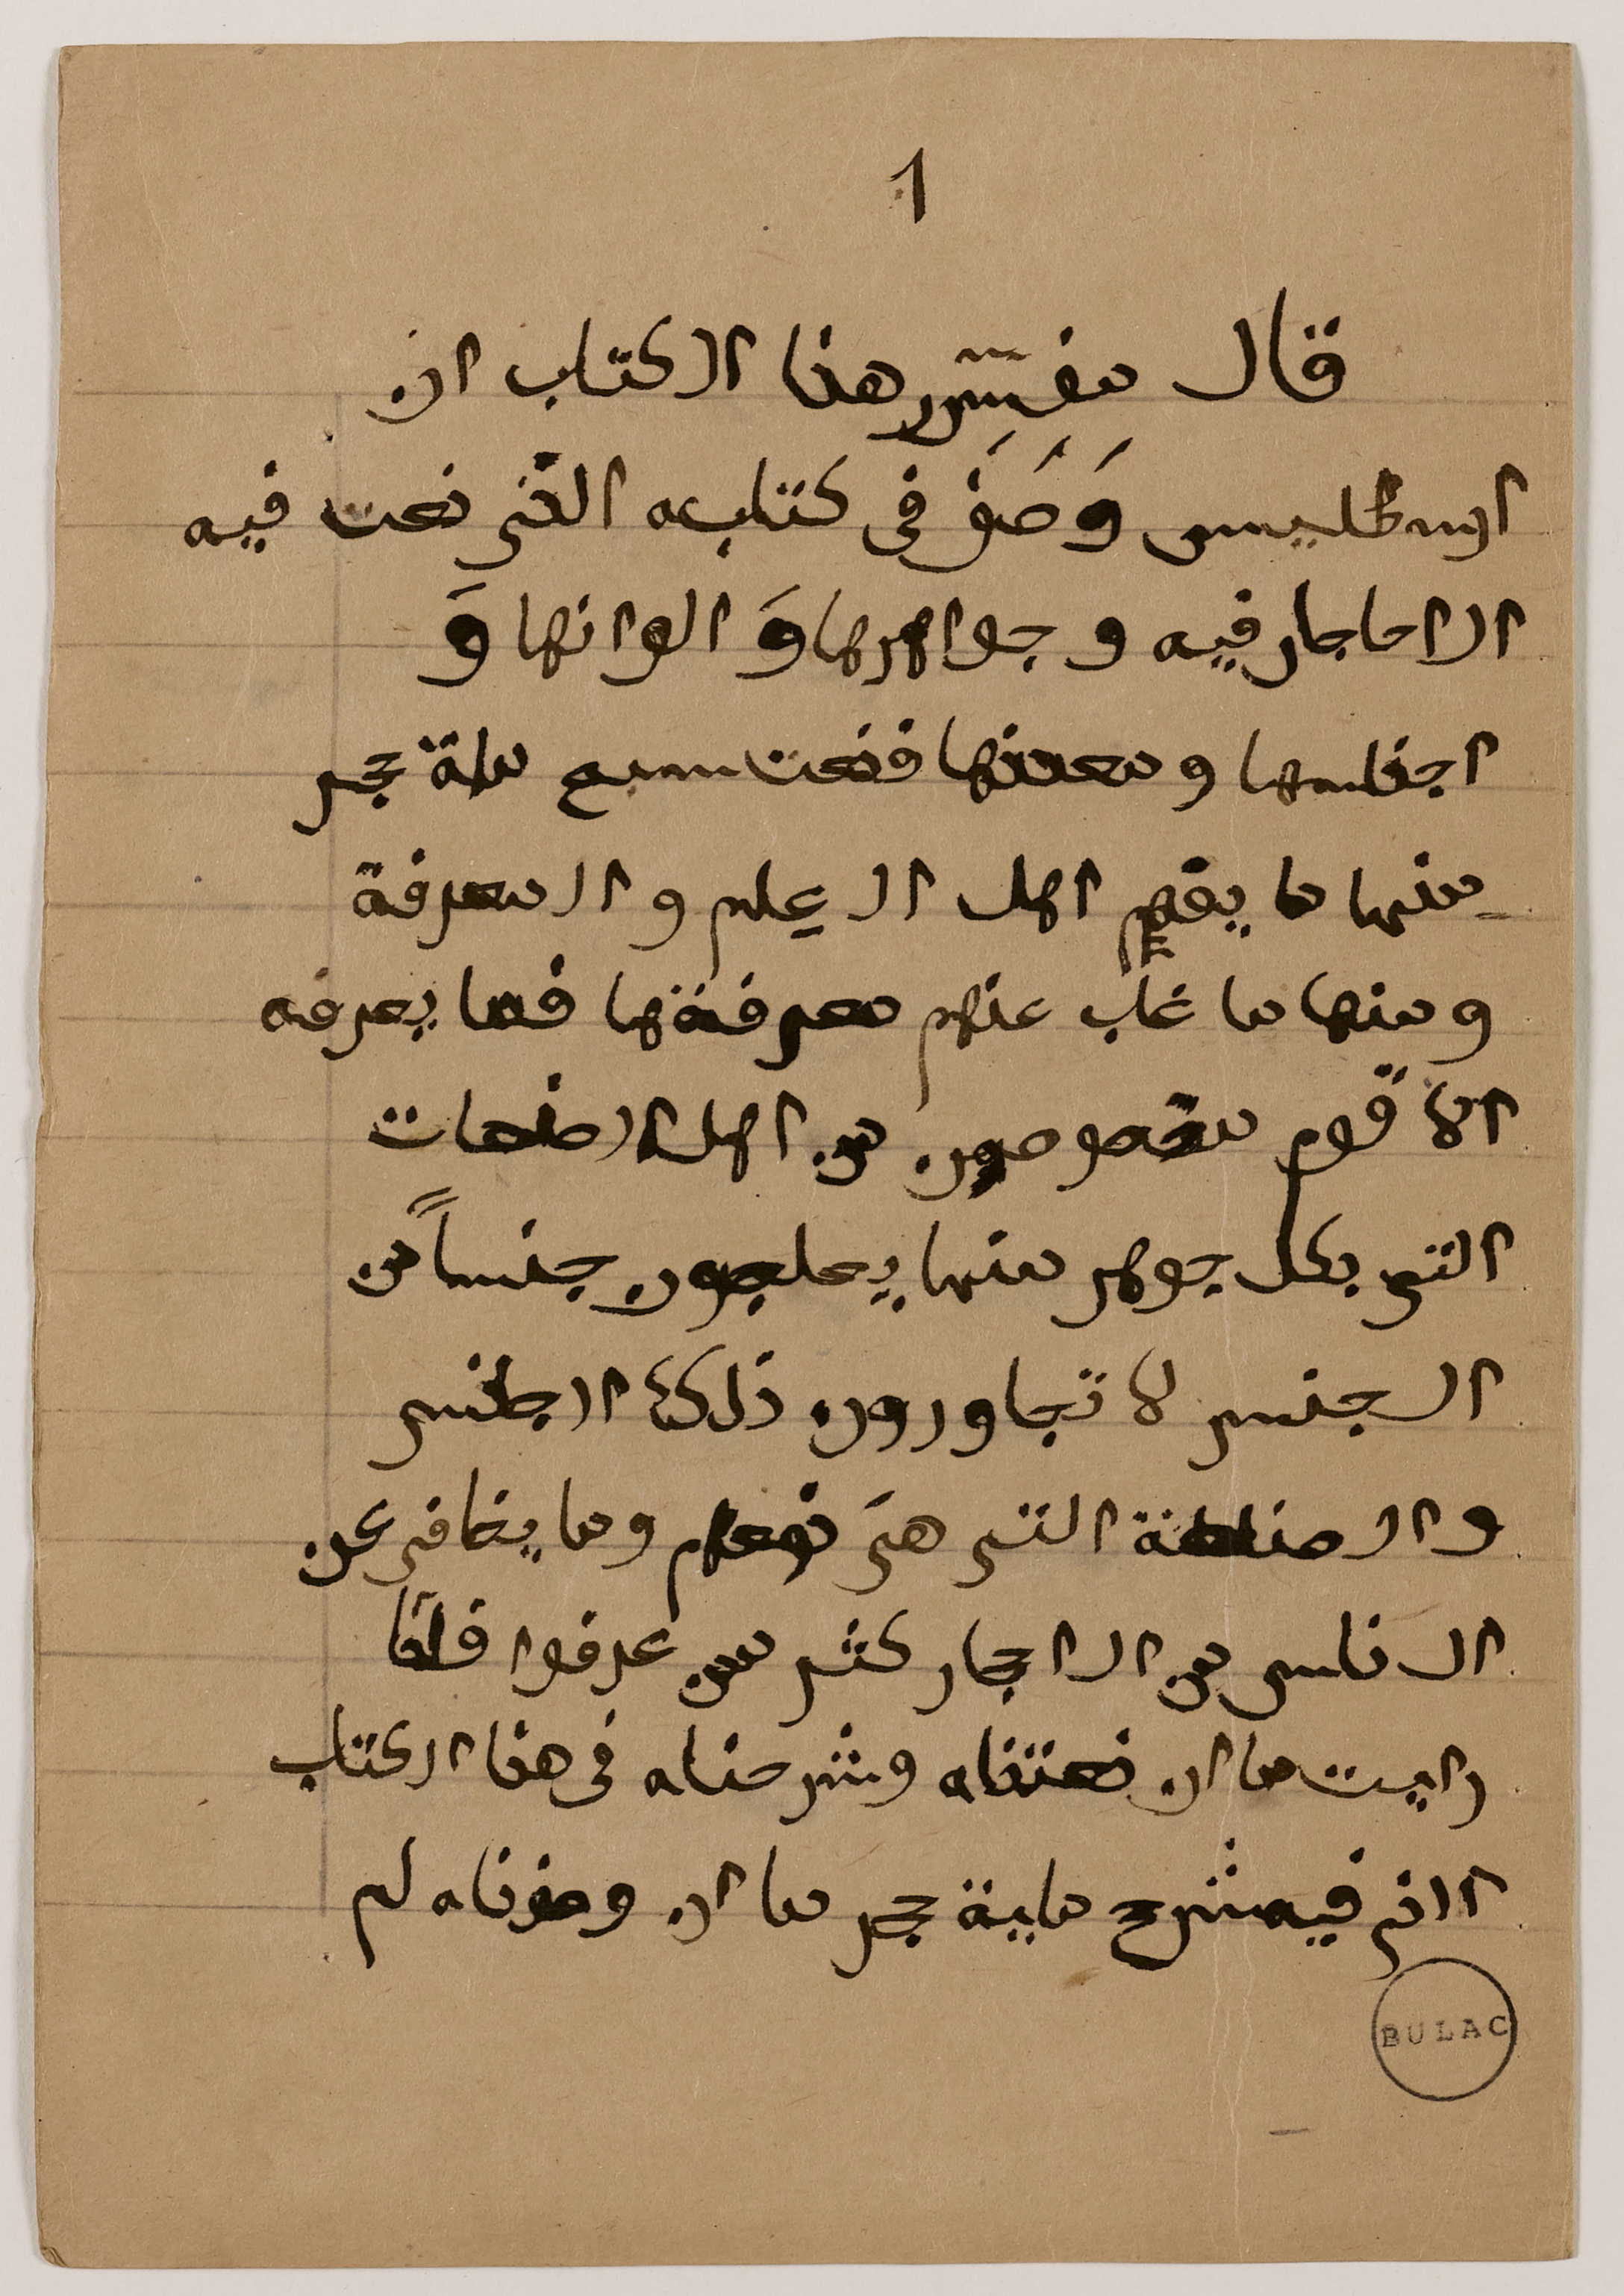 1
قال مفسّر هذا الكتاب ان
ارسطليس وَصَفَ في كتابه الذي نعت فيه
الاحاجار فيه و جواهرها وَ الوانها وَ
اجناسها و معدنها فنعت سبع ماة حجر
منها ما يفهم اهل العِلم و المعرفة
و منها ما غاب عنهم معرفتها فما يعرفه
الا قوم مخصوصون من اهل الصنعات
التي بكل جوهر منها يعلجون جنساً من
الجنس لا تجاورون ذلك الاجنس
و الصناعة التي هيَ نعم وما يخافى عن
الناس من الاحجار كثر من عرفوا فلما
رايت ما ان نعتناه وشرحناه في هذا الكتاب
اانم فيه شرح ماية حجر ما ان وصفناه لم
BULAC